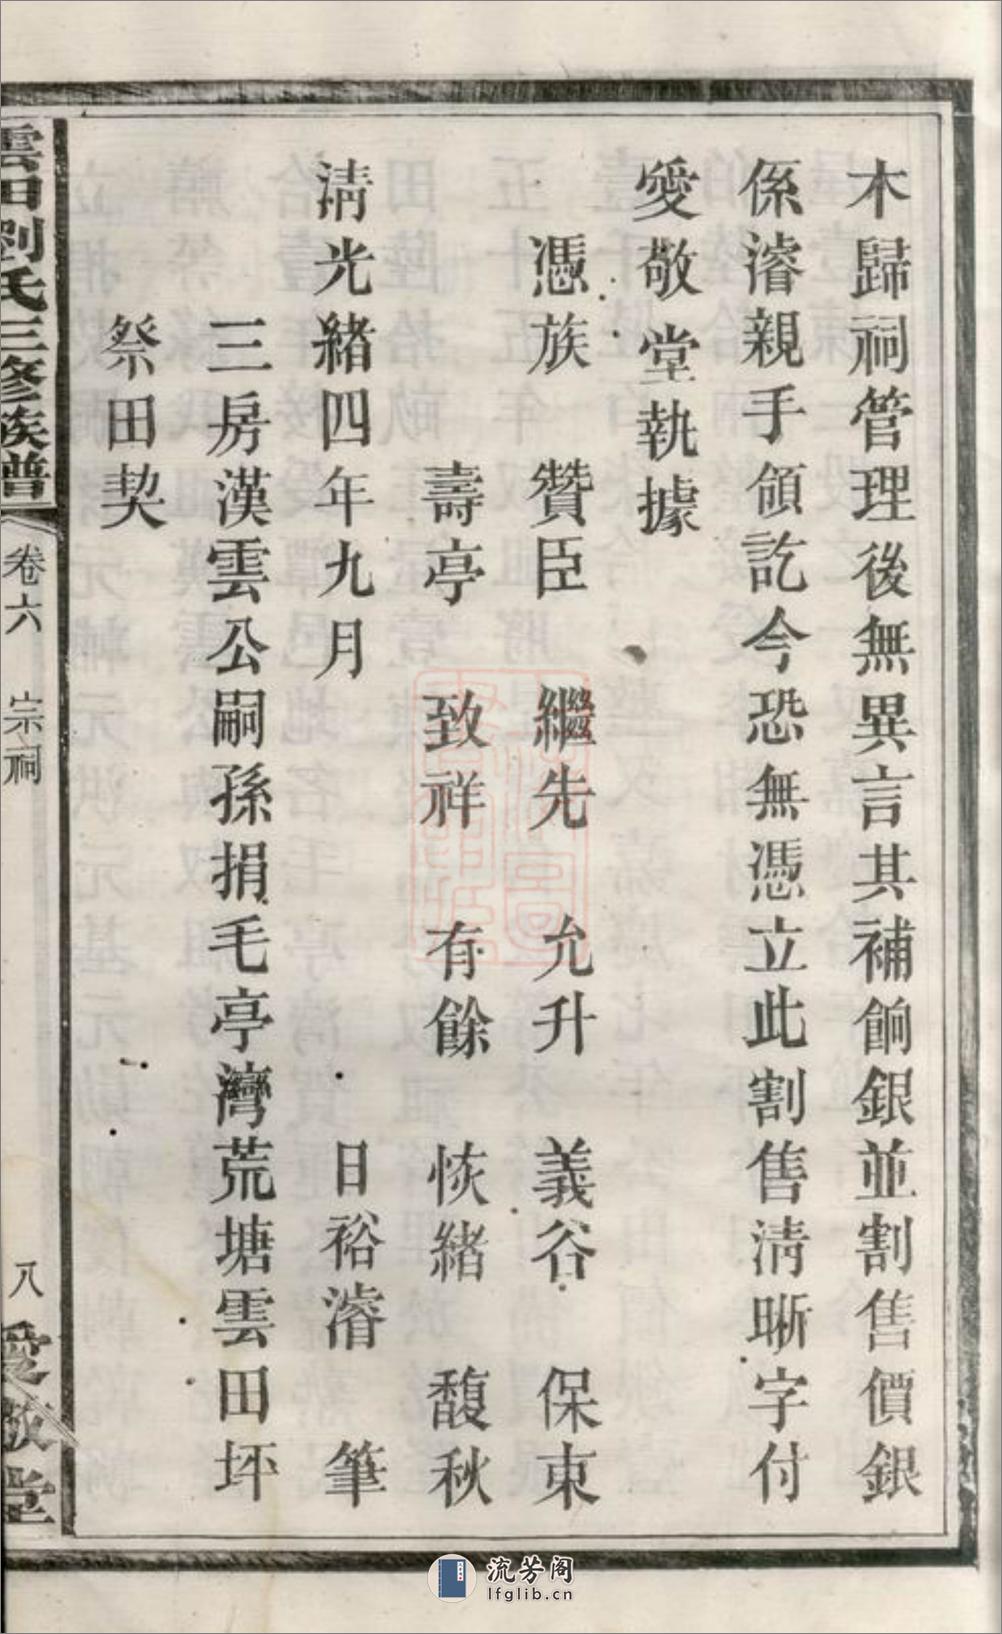 木歸祠管理後無異言其補餉銀並割售價銀
係濬親手領訖今恐無憑立此割售清晰字付
愛敬堂執據
憑族　贊臣　繼先　允升　義谷　保東
壽亭　致祥　有餘　恢緒　馥秋
清光緒四年九月　　日裕濬　筆
三房漢雲公嗣孫捐毛亭灣荒塘雲田坪
祭田契
雲田劉氏三修族譜　卷六　宗祠　八　愛敬堂
流芳阁
lfglib.cn